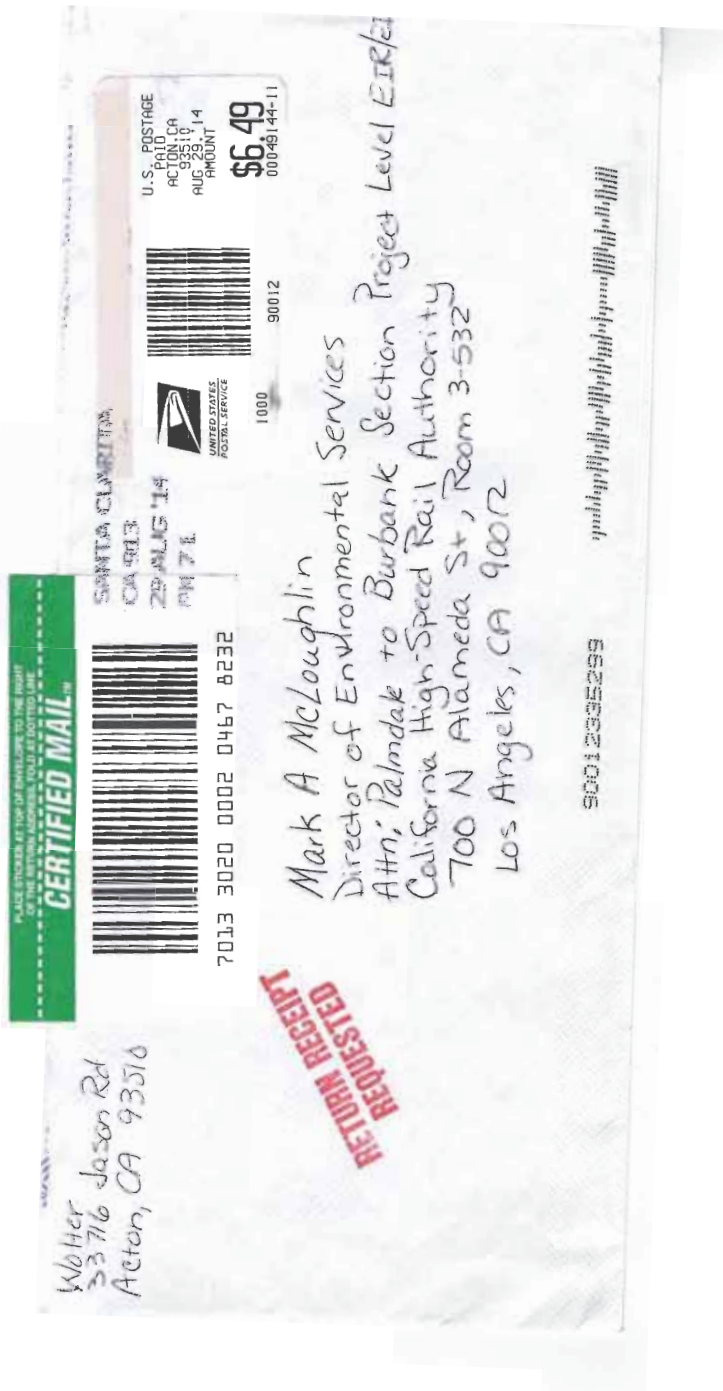 Wolter
33716 Jason Rd
Acton, CA 93510
PLACE STICKER AT TOP OF ENVELOPE TO THE RIGHT
OF THE RETURN ADDRESS, FOLD AT DOTTED LINE
CERTIFIED MAIL™
7013 3020 0002 0467 8232
SANTA CLARITA
CA 913
29 AUG '14
PM 7 L
UNITED STATES
POSTAL SERVICE
1000
90012
U.S. POSTAGE
PAID
ACTON, CA
93510
AUG 29, '14
AMOUNT
$6.49
00049144-11
RETURN RECEIPT
REQUESTED
Mark A McLoughlin
Director of Environmental Services
Attn: Palmdale to Burbank Section Project Level EIR/EI
California High-Speed Rail Authority
700 N Alameda St, Room 3-532
Los Angeles, CA 90012
90012335299